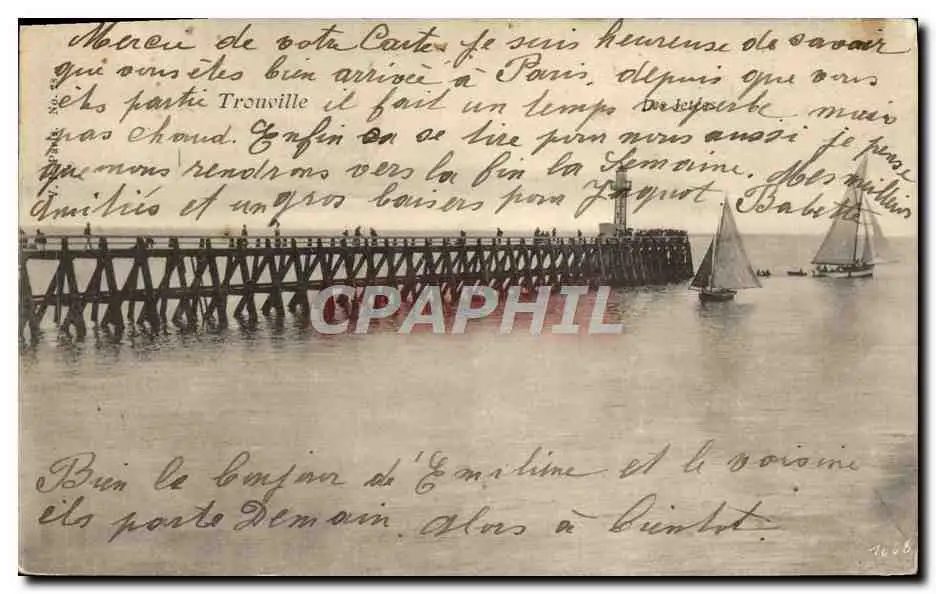 Merci de votre Carte. Je suis heureuse de savoir
que vous êtes bien arrivée à Paris. depuis que vous
êts partie il fait un temps superbe mais
Trouville
pas chaud. Enfin ça se tire pour nous aussi je pense
que nous rendrons vers la fin la Semaine. Mes meilleurs
amitiés et un gros baisers pour Jaquot Babette
CPAPHIL
Bien le bonjour d'Emilienne et le voisine
ils parte Demain. Alors à bientot.